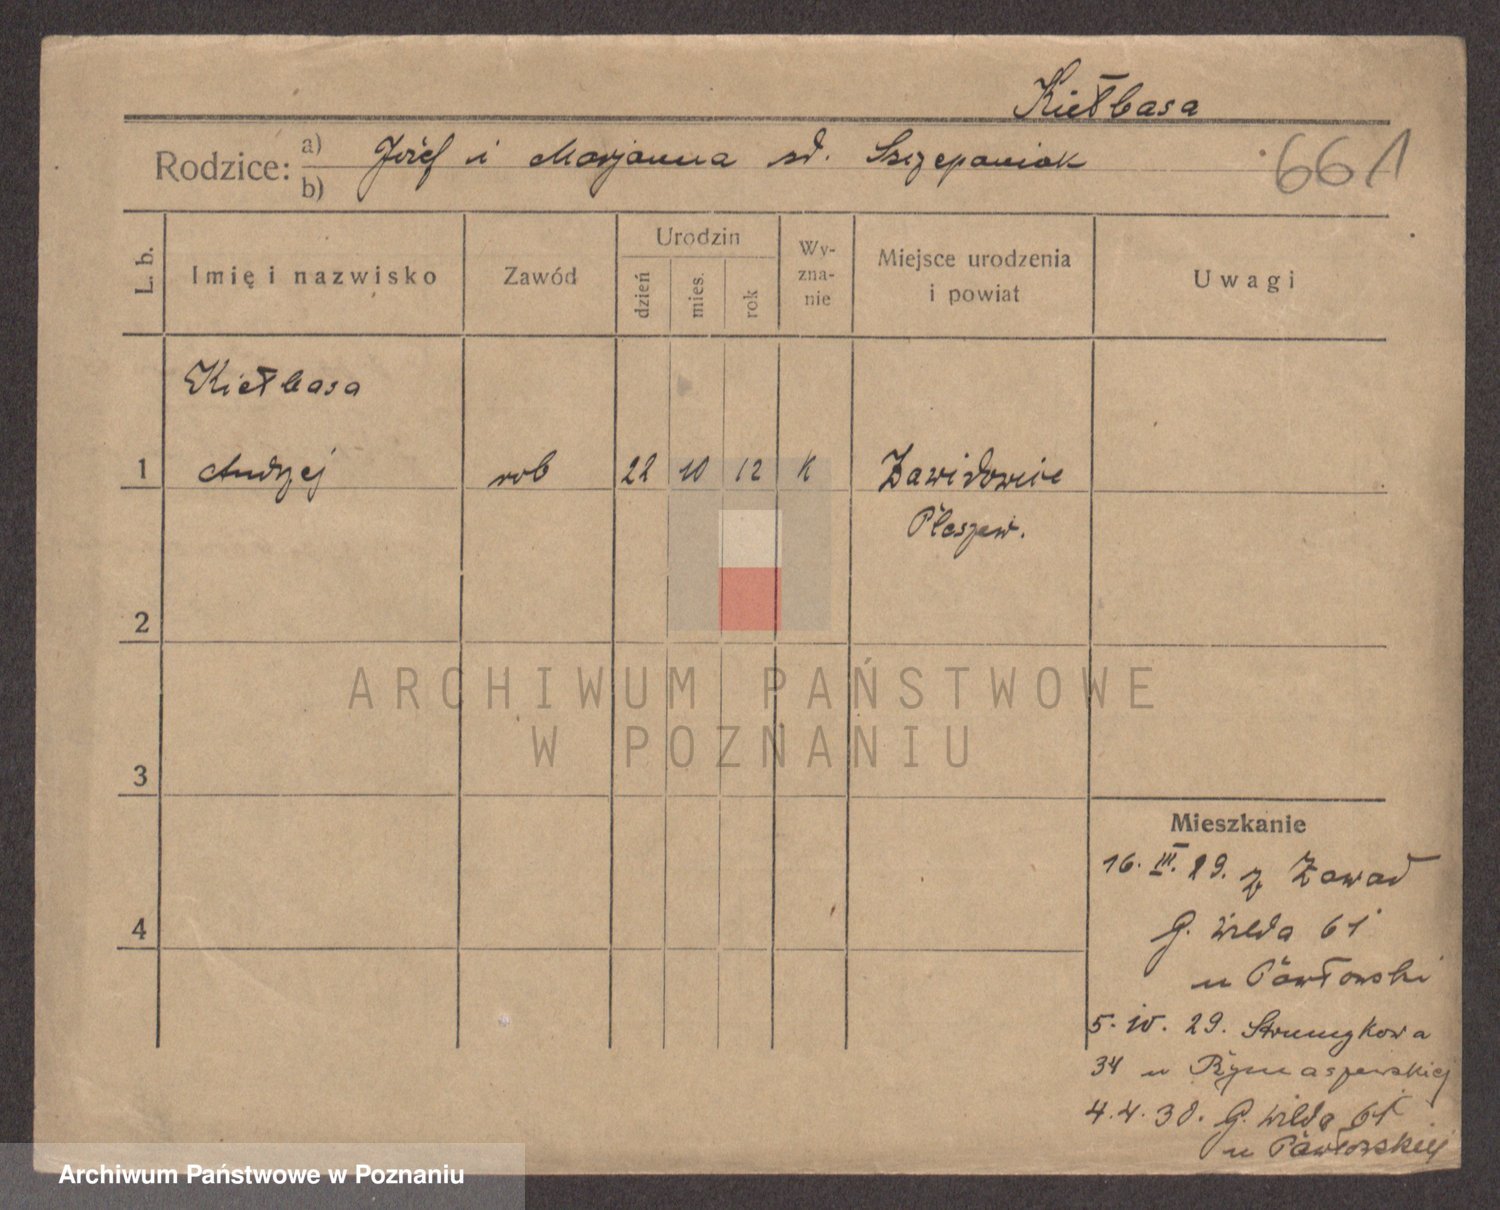 Kiełbasa
Rodzice: a) Józef i Marjanna sd. Szczepaniak
b)
661
L. b. Imię i nazwisko Zawód Urodzin dzień mies. rok Wy-zna-nie Miejsce urodzenia i powiat Uwagi
Kiełbasa
1 Andrzej rob 22 10 12 K Zawidowice
Pleszew.
2
ARCHIWUM PAŃSTWOWE
W POZNANIU
3
Mieszkanie
16. III. 29. z Zawad
4
G. Wilda 61
u Pawłowski
5. IV. 29. Strumykowa
34 u Rymaszewskiej
4. 4. 30. G. Wilda 61
u Pawłowskiej
Archiwum Państwowe w Poznaniu